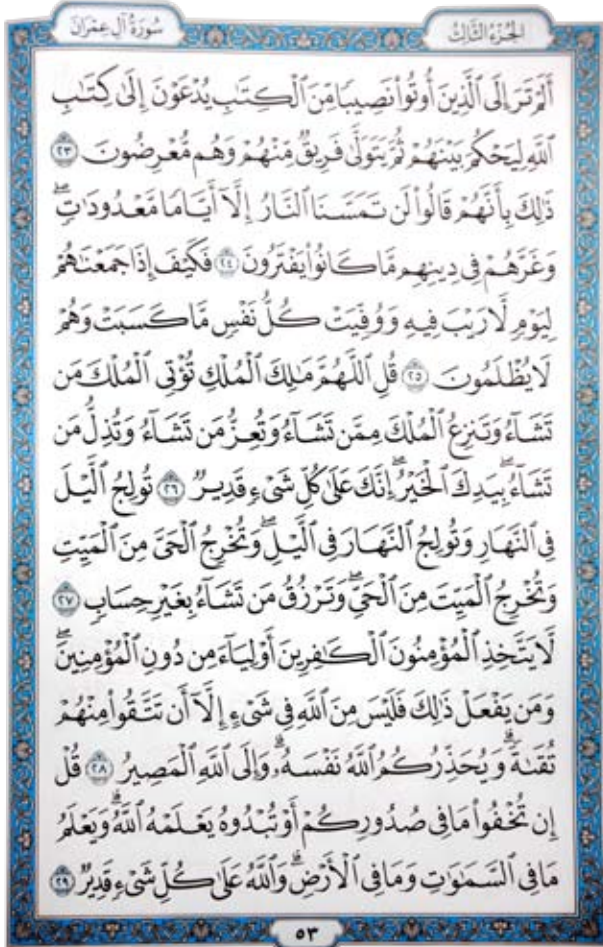 الجزء الثالث
سورة آل عمران
أَلَمْ تَرَ إِلَى ٱلَّذِينَ أُوتُوا۟ نَصِيبًا مِّنَ ٱلْكِتَٰبِ يُدْعَوْنَ إِلَىٰ كِتَٰبِ
ٱللَّهِ لِيَحْكُمَ بَيْنَهُمْ ثُمَّ يَتَوَلَّىٰ فَرِيقٌ مِّنْهُمْ وَهُم مُّعْرِضُونَ ٢٣
ذَٰلِكَ بِأَنَّهُمْ قَالُوا۟ لَن تَمَسَّنَا ٱلنَّارُ إِلَّآ أَيَّامًا مَّعْدُودَٰتٍ ۖ
وَغَرَّهُمْ فِى دِينِهِم مَّا كَانُوا۟ يَفْتَرُونَ ٢٤ فَكَيْفَ إِذَا جَمَعْنَٰهُمْ
لِيَوْمٍ لَّا رَيْبَ فِيهِ وَوُفِّيَتْ كُلُّ نَفْسٍ مَّا كَسَبَتْ وَهُمْ
لَا يُظْلَمُونَ ٢٥ قُلِ ٱللَّهُمَّ مَٰلِكَ ٱلْمُلْكِ تُؤْتِى ٱلْمُلْكَ مَن
تَشَآءُ وَتَنزِعُ ٱلْمُلْكَ مِمَّن تَشَآءُ وَتُعِزُّ مَن تَشَآءُ وَتُذِلُّ مَن
تَشَآءُ ۖ بِيَدِكَ ٱلْخَيْرُ ۖ إِنَّكَ عَلَىٰ كُلِّ شَىْءٍ قَدِيرٌ ٢٦ تُولِجُ ٱلَّيْلَ
فِى ٱلنَّهَارِ وَتُولِجُ ٱلنَّهَارَ فِى ٱلَّيْلِ ۖ وَتُخْرِجُ ٱلْحَىَّ مِنَ ٱلْمَيِّتِ
وَتُخْرِجُ ٱلْمَيِّتَ مِنَ ٱلْحَىِّ ۖ وَتَرْزُقُ مَن تَشَآءُ بِغَيْرِ حِسَابٍ ٢٧
لَّا يَتَّخِذِ ٱلْمُؤْمِنُونَ ٱلْكَٰفِرِينَ أَوْلِيَآءَ مِن دُونِ ٱلْمُؤْمِنِينَ ۖ
وَمَن يَفْعَلْ ذَٰلِكَ فَلَيْسَ مِنَ ٱللَّهِ فِى شَىْءٍ إِلَّآ أَن تَتَّقُوا۟ مِنْهُمْ
تُقَىٰةً ۗ وَيُحَذِّرُكُمُ ٱللَّهُ نَفْسَهُۥ ۗ وَإِلَى ٱللَّهِ ٱلْمَصِيرُ ٢٨ قُلْ
إِن تُخْفُوا۟ مَا فِى صُدُورِكُمْ أَوْ تُبْدُوهُ يَعْلَمْهُ ٱللَّهُ ۗ وَيَعْلَمُ
مَا فِى ٱلسَّمَٰوَٰتِ وَمَا فِى ٱلْأَرْضِ ۗ وَٱللَّهُ عَلَىٰ كُلِّ شَىْءٍ قَدِيرٌ ٢٩
٥٣